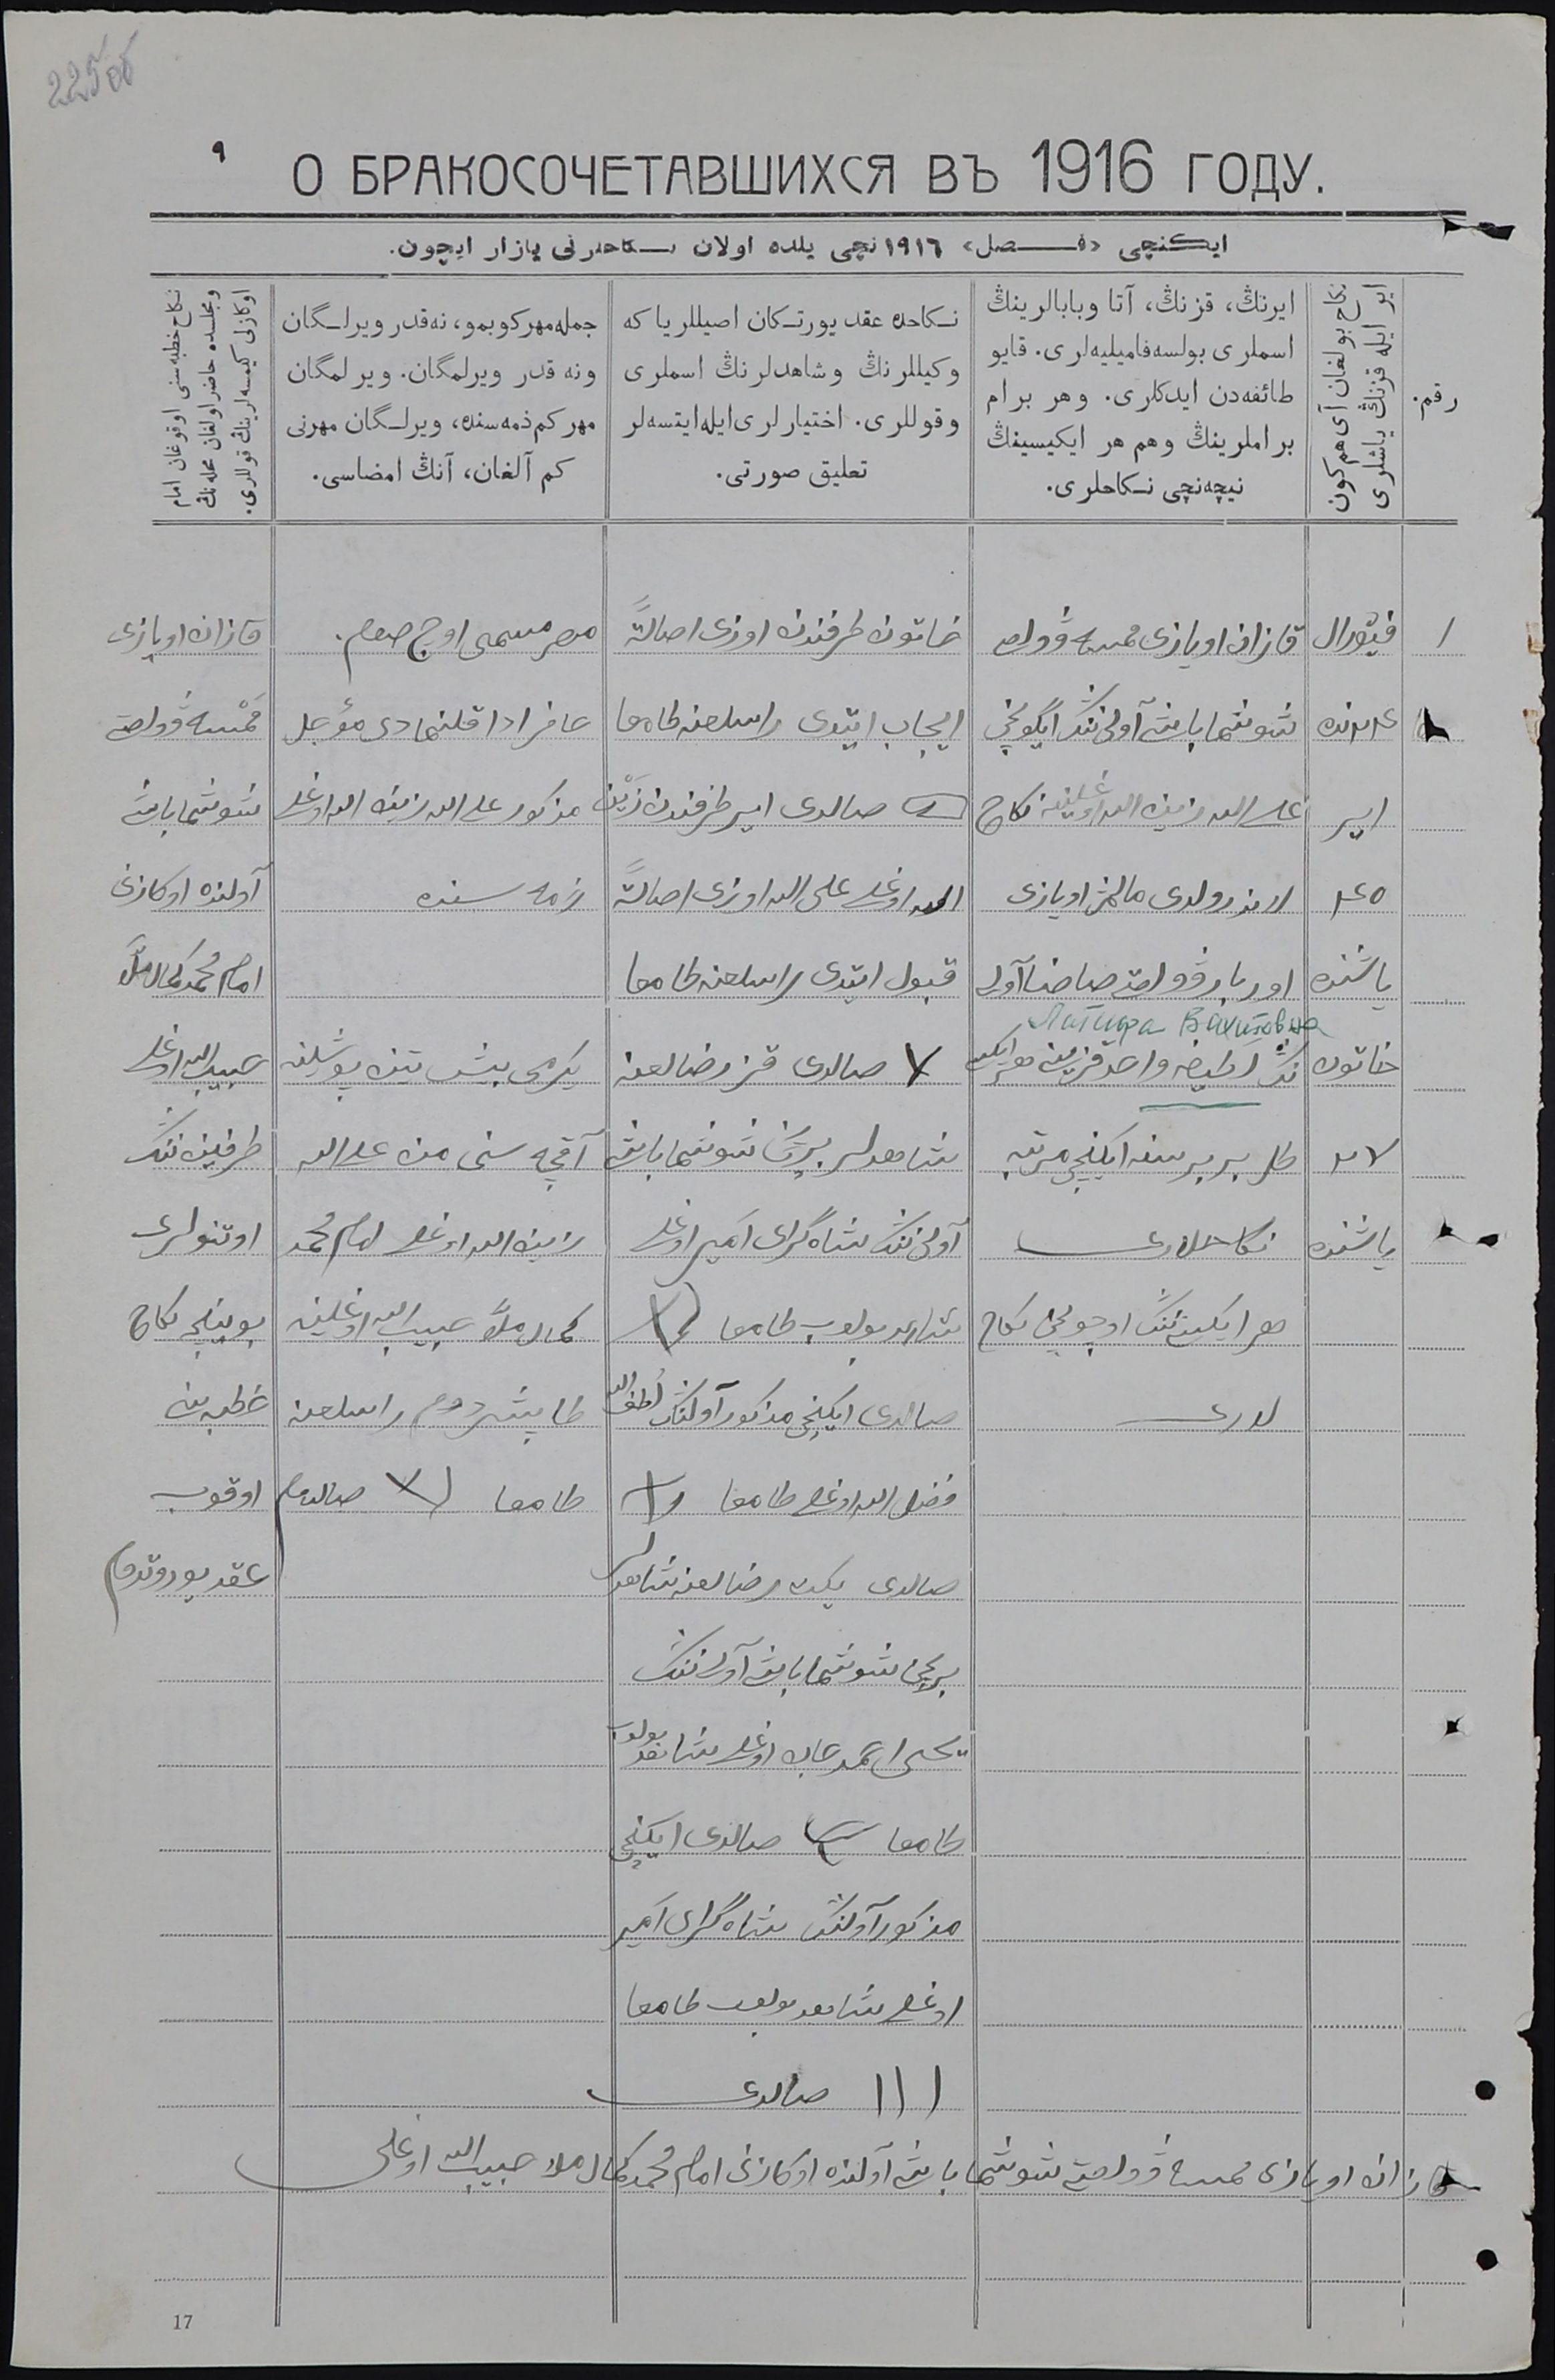 22508
٩
О БРАКОСОЧЕТАВШИХСЯ ВЪ 1916 ГОДУ.
ایكنچی «فصل» ١٩١٦نچی یلده اولان نكاحلرنی یازار ایچون.
رقم.
نكاح بولغان آی هم كون
ایر ایله قزنڭ یاشلری
ایرنڭ، قزنڭ، آتا وبابالرینڭ
اسملری بولسه فامیلیه‌لری. قایو
طائفه‌دن ایدكلری. وهر برام
براملرینڭ وهم هر ایكیسینڭ
نیچه‌نچی نكاحلری.
نكاحده عقد یورتكان اصیللر یا كه
وكیللرنڭ وشاهدلرنڭ اسملری
وقوللری. اختیارلری ایله ایتسه‌لر
تعلیق صورتی.
جمله مهر كوبمو، نه‌قدر ویرلگان
ونه قدر ویرلمگان. ویرلمگان
مهر كم ذمه‌سنده، ویرلگان مهرنی
كم آلغان، آنڭ امضاسی.
نكاح خطبه‌سنی اوقوغان امام
ومجلسده حاضر اولغان محله‌نڭ
اوكازلی كیمسه‌لرینڭ قوللری.
١
فیورال
ایر
٤٥
یاشنده
خاتون
٢٧
یاشنده
قازان اویازی ممسه ڤولصت
شوشما باش آولی ننڭ ایگونچی
علی الله زین الله اوغلینه نكاح
لاندرولدی مالمژ اویازی
اور بار ڤولصت صاصنا آولی
Латифа Вахитовна
نڭ لطیفه واحد قزینه هر ایكیسی
طلر بر برسنه ایكنچی مرتبه
نكاحلاری
هر ایكیسی ننڭ اوچونچی نكاح
لاری
خاتون طرفندن اوزی اصالةً
ایجاب ایتدی راسلغنه طامغا
صالدی ایر طرفندن زین
الله اوغلی علی الله اوزی اصالةً
قبول ایتدی راسلغنه طامغا
٧ صالدی قز رضالغنه
شاهدلر برنچی شوشما باش
آولی ننڭ شاه گرای امیر اوغلی
شاهد بولوب طامغا
صالدی ایكنچی مذكور آولننڭ لطف الله
فضل الله اوغلی طامغا
صالدی یكت رضالغنه شاهدلر
برنچی شوشما باش آولی ننڭ
یحیی احمدجان اوغلی شاهد بولوب
طامغا صالدی ایكنچی
مذكور آولننڭ شاه گرای امیر
اوغلی شاهد بولوب طامغا
ااا صالدی
مهر مسمی اوچ صوم.
حاضر ادا قلنمادی مؤجل
مذكور علی الله زین الله اوغلی
ذمه سنده
یگرمی بیش تین پوشلین
آقچه سنی من علی الله
زین الله اوغلی امام محمد
كمال ملا حبیب الله اوغلینه
طابشردم راسلغنه
طامغا صالدم
قازان اویازی
ممسه ڤولصت
شوشما باش
آولنده اوكازنی
امام محمد كمال ملا
حبیب الله اوغلی
طرفین ننڭ
اوتنولری
بوینچه نكاح
خطبه سنی
اوقوب
عقد یوروتدم
قازان اویازی ممسه ڤولصت شوشما باش آولنده اوكازنی امام محمد كمال ملا حبیب الله اوغلی
17